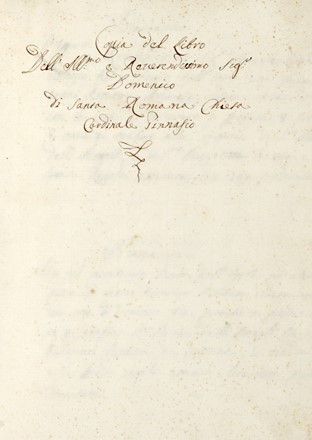 Copia del Libro
Dell' Ill.mo e Reverendissimo Sig.
Domenico
di Santa Romana Chiesa
Cardinale Ginnasio